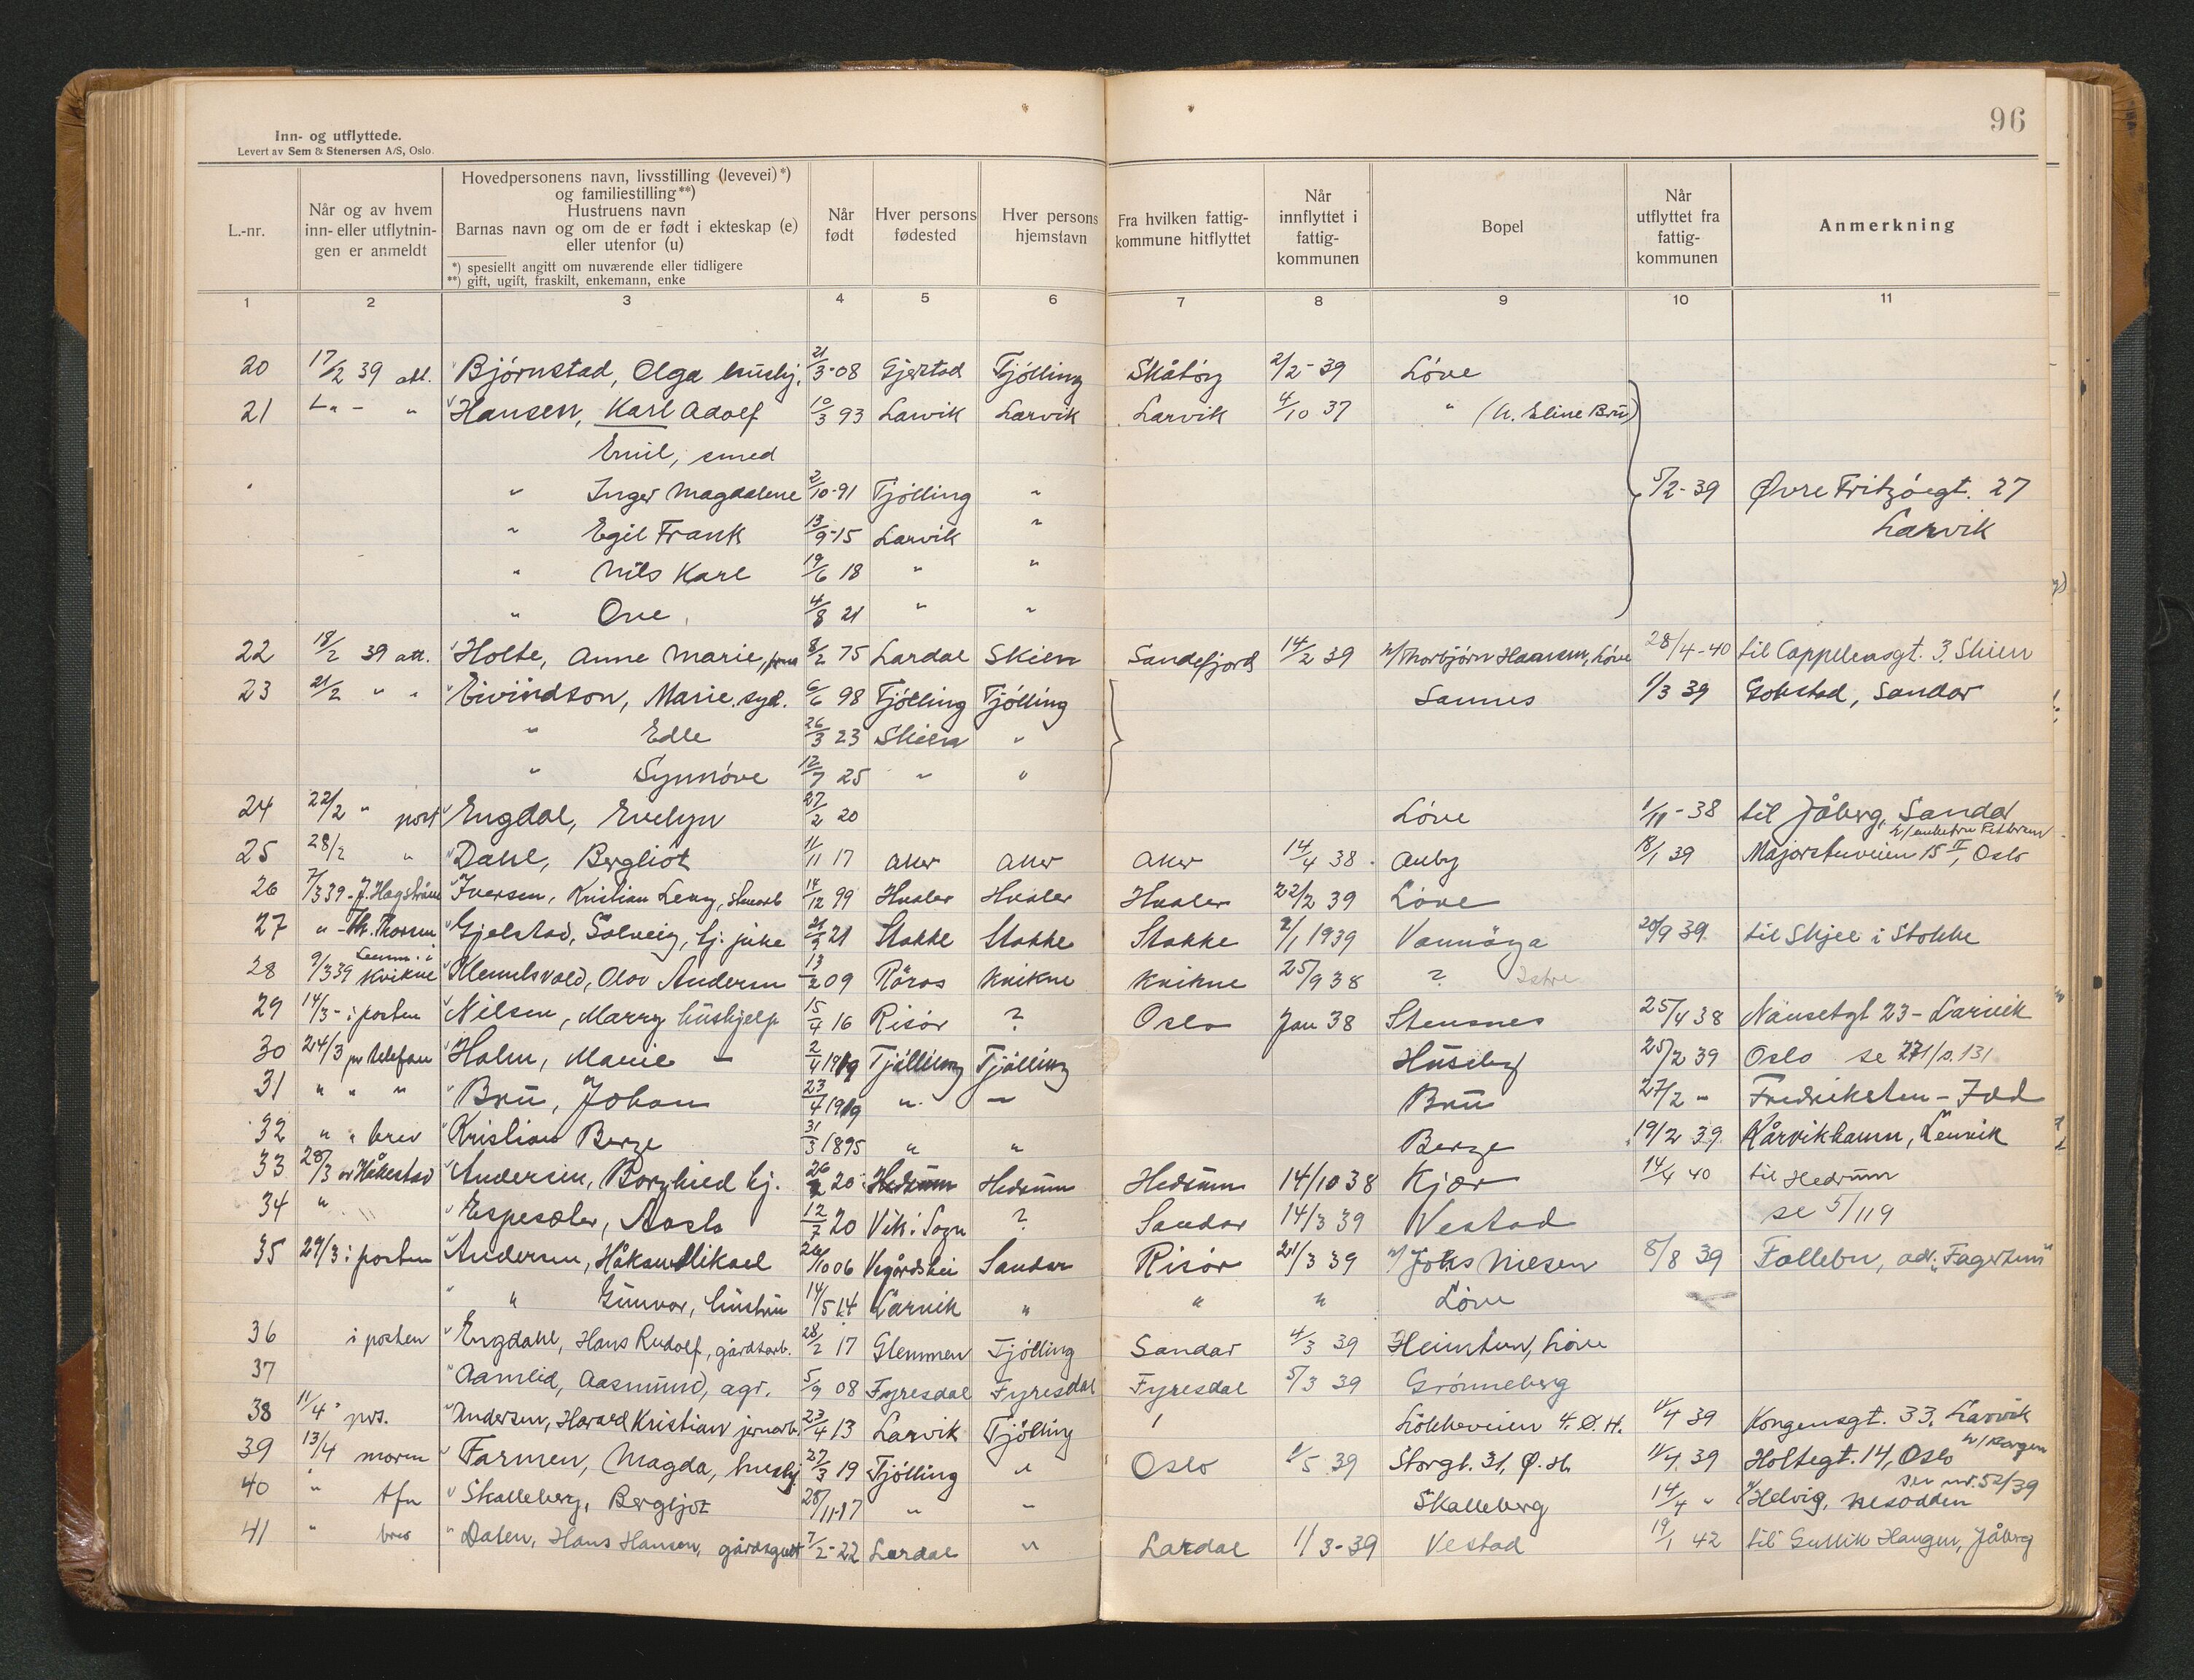 96
Inn- og utflyttede.
Levert av Sem & Stenersen A/S, Oslo.
L.-nr.
Når og av hvem
inn- eller utflytnin-
gen er anmeldt
Hovedpersonens navn, livsstilling (levevei)*)
og familiestilling**)
Hustruens navn
Barnas navn og om de er født i ekteskap (e)
eller utenfor (u)
*) spesiellt angitt om nuværende eller tidligere
**) gift, ugift, fraskilt, enkemann, enke
Når
født
Hver persons
fødested
Hver persons
hjemstavn
Fra hvilken fattig-
kommune hitflyttet
Når
innflyttet i
fattig-
kommunen
Bopel
Når
utflyttet fra
fattig-
kommunen
Anmerkning
1 2 3 4 5 6 7 8 9 10 11
20 17/2 39 att. Bjørnstad, Olga hushj. 21/3-08 Gjerstad Tjølling Skåtøy 2/2-39 Løve
21 " - " Hansen, Karl Adolf 10/3 93 Larvik Larvik Larvik 4/10 37 " (h. Eline Bru)
Emil, smed
" Inger Magdalene 2/10-91 Tjølling " 5/2-39 Øvre Fritzøegt. 27
" Egil Frank 13/9-15 Larvik " Larvik
" Nils Karl 19/6 18 " "
" Ove 4/8 21 " "
22 18/2 39 att. Holte, Anne Marie, frua 8/2 75 Lardal Skien Sandefjord 14/2 39 n/Thorbjørn Haansen, Løve 28/4-40 til Cappelensgt. 3. Skien
23 21/2 " " Eivindson, Marie. syd. 6/6 98 Tjølling Tjølling Sannes 1/3 39 Gokstad, Sandar
" Edle 26/3 23 Skien "
" Synnøve 12/7 25 " "
24 22/2 " post Engdal, Evelyn 27/2 20 Løve 1/11-38 til Jåberg, Sandar
h/ enkefru Pettersen
25 28/2 " Dahl, Bergliot 11/11 17 Aker Aker Aker 14/4 38. Auby 18/1 39 Majorstuveien 15 II, Oslo
26 7/3 39 - J. Hagstrøm Iversen, Kristian Leny, stuarb 14/12 99 Hvaler Hvaler Hvaler 22/2 39 Løve
27 " - Th. Thorsen Gjelstad, Solveig, hj. pike 21/3 21 Stokke Stokke Stokke 2/1 1939 Vannäga 20/9 39. til Skjee i Stokke
28 9/3 39 Lensm. i Kvikne Klemetsvold, Olov Andersen 13/2 09 Röros Kvikne Kvikne 25/9 38 ? Istre
29 14/3 - i posten Nilsen, Marry hushjelp 15/4 16 Risør ? Oslo Jan 38 Stensnes 25/4 38 Nansetgt 23 - Larvik
30 24/3 pr telefon Holm, Marie - 2/4 1919 Tjølling Tjølling Huseby 25/2 39 Oslo se 271/s.131
31 " " " Bru, Johan 23/4 1919 " - Bru 27/2 - Fredriksten - Idd
32 " " brev Kristian Berge 31/3 1895 " " Berge 19/2 39. Kårvikhamn, Lenvik
33 28/3 av Håkestad Andersen, Borghild hj. 26/2 20 Hedrum Hedrum Hedrum 14/10 38 Kjær 14/4 40 til Hedrum
34 " Espesæter, Aasta 12/7 20 Vik i Sogn ? Sandar 14/3 39 Vestad se 5/119
35 29/3 i posten Andersen, Håkon Mikael 24/10 06 Vegårdshei Sandar Risør 21/3 39 n/ Joks Niesen 8/8 39 Follebu, adr. "Fagertun"
" " Gunvor, hustru 14/5 14 Larvik " " " Løve
36 i posten Engdahl, Hans Rudolf, gårdsarb. 28/2 17 Glemmen Tjølling Sandar 4/3 39 Heimtun, Løve
37 Aamlid, Aasmund, agr. 5/9 08 Fyresdal Fyresdal Fyresdal 5/3 39 Grønneberg
38 11/4 " prs. Andersen, Harald Kristian jernarb. 23/4 13 Larvik Tjølling Løkkeveien 4. Ø. H. 1/4 39 Kongensgt. 33, Larvik
39 13/4 moren Farmen, Magda, hushj. 27/3 19 Tjølling " Oslo 1/5 39 Storgt. 31, Ø. H. 11/4 39 Holtegt. 14, Oslo
40 " tfn Skalleberg, Bergljot 28/11-17 " " Skalleberg 14/4 " Helvig, Nesodden
se nr. 52/39
41 " brev Dalen, Hans Hansen, gårdsgutt 7/2-22 Lardal " Lardal 1/3-39 Vestad 19/1 42 til Gullik Haugen, Jåberg